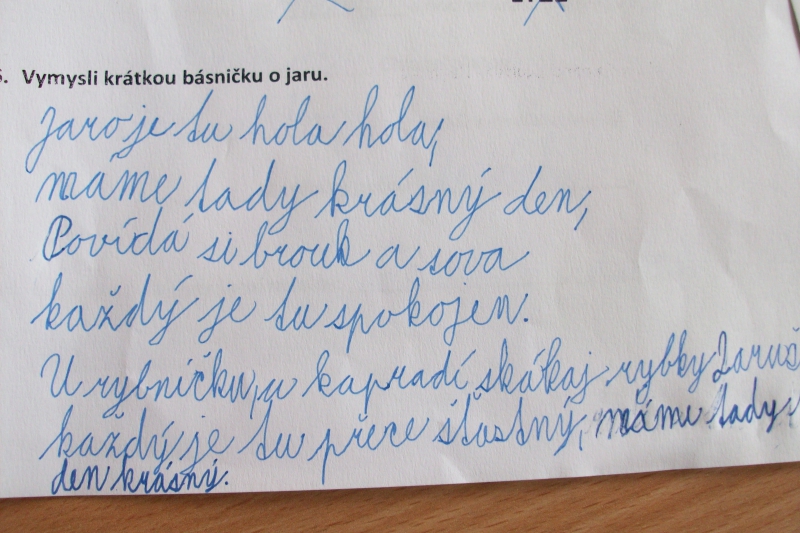 5. Vymysli krátkou básničku o jaru.
Jaro je tu hola hola,
máme tady krásný den,
Povídá si brouk a sova
každý je tu spokojen.
U rybníčku, u kapradí skákaj rybky
každý je tu přece šťastný, máme tady
den krásný.